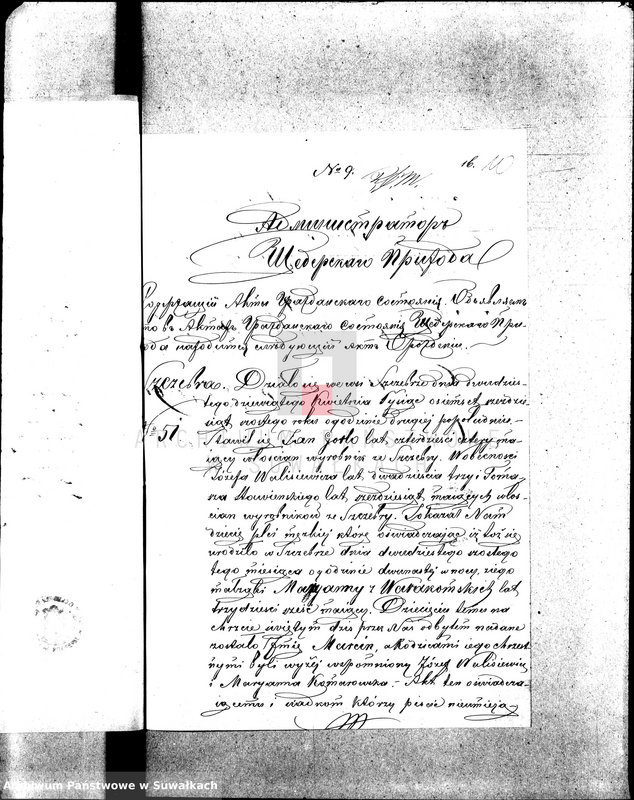 No 9.
16. 10
Администраторъ
Щеберскаго Прихода
Акты Гражданскаго Состоянія. Объявляетъ
въ Актахъ Гражданскаго Состоянія Щеберскаго При-
находится слѣдующій Актъ Рожденія.
Szczebra. Działo się we wsi Szczebrze dnia dwudzies-
tego dziewiątego Kwietnia tysiąc osiemset sześćdzie-
siąt szóstego roku o godzinie drugiej popołudniu.
No 51
Stawił się Jan lat czterdzieści cztery ma-
iący włościan wyrobnik ze Szczebry. W obecności
Józefa Walisiewicza lat dwadzieścia trzy i Toma-
sza lat sześćdziesiąt maiących włos-
cian wyrobników ze Szczebry. Okazał Nam
dziecię płci męzkiej które oświadczając iż toż się
urodziło w Szczebrze dnia dwudziestego szóstego
tego miesiąca o godzinie dwunastej w nocy, z iego
małżąki Maryanny z lat
trzydzieści sześć maiący. Dziecięciu temu na
chrzcie świętym dziś przez Nas odbytem nadane
zostało Imię Marcin, a Rodzicami iego chrzest-
nymi byli wyżej wspomniony Józef Walisiewicz
i Maryanna Komarowska. - Akt ten oświadcza-
iącemu i świadkom którzy pisać nieumieją
Archiwum Państwowe w Suwałkach